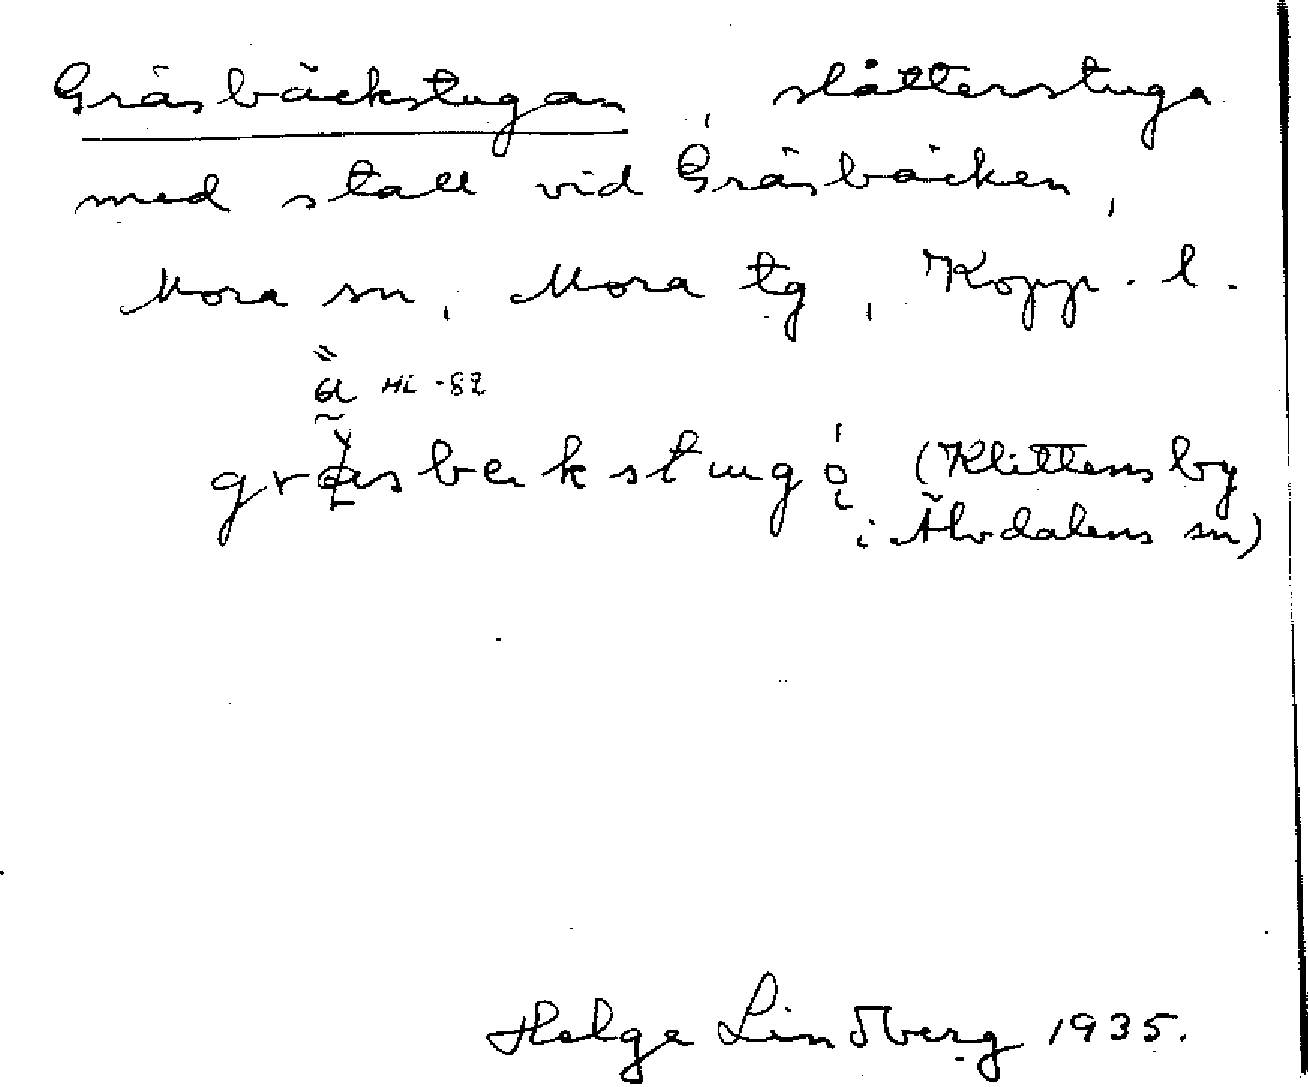 Gräsbäckstugan, slåtterstuga
med stall vid Gräsbäcken,
Mora sn, Mora tg, Kopp. l.
(Klittens by
i Älvdalens sn)
Helge Lindberg 1935.